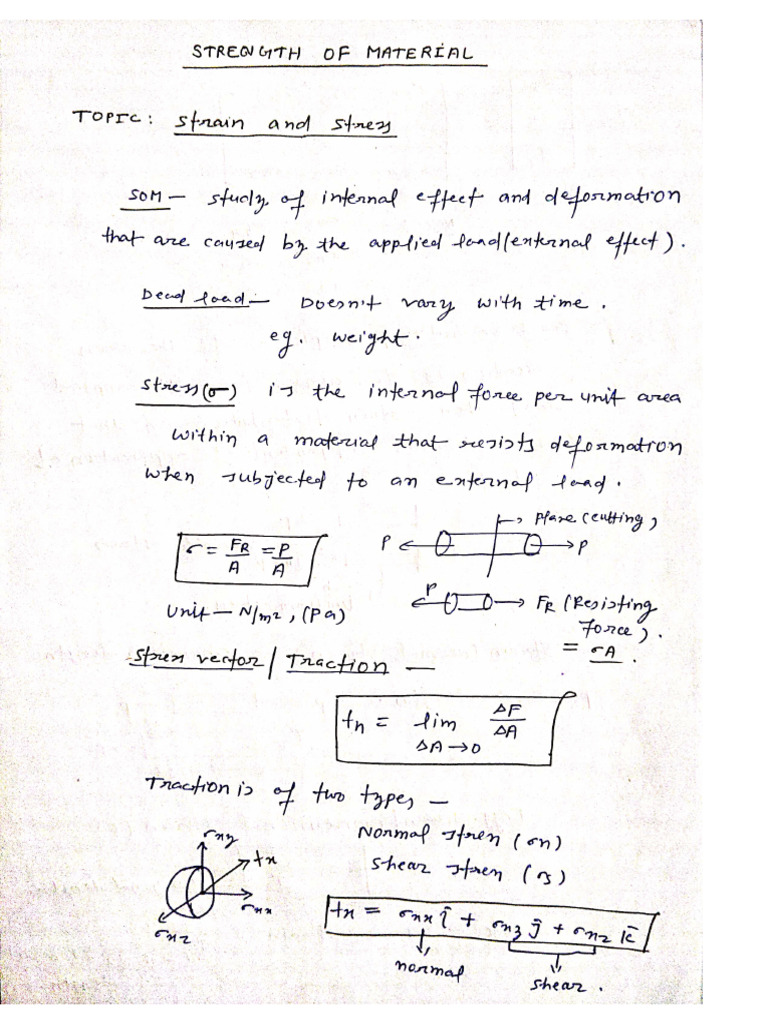 STRENGTH OF MATERIAL
TOPIC: Strain and stress
SOM — study of internal effect and deformation
that are caused by the applied load (external effect).
Dead load — Doesn't vary with time.
eg. weight.
Stress (σ) is the internal force per unit area
within a material that resists deformation
when subjected to an external load.
σ = FR/A = P/A
→ Plane (cutting)
P P
Unit — N/m2, (Pa)
P FR (Resisting
Force).
= σA.
Stress vector / Traction —
tn = lim ΔF/ΔA
ΔA→0
Traction is of two types —
Normal stress (σn)
Shear stress (σs)
σxy
tx
σxx
σxz
tx = σxx î + σxy ĵ + σxz k̂
normal
shear.